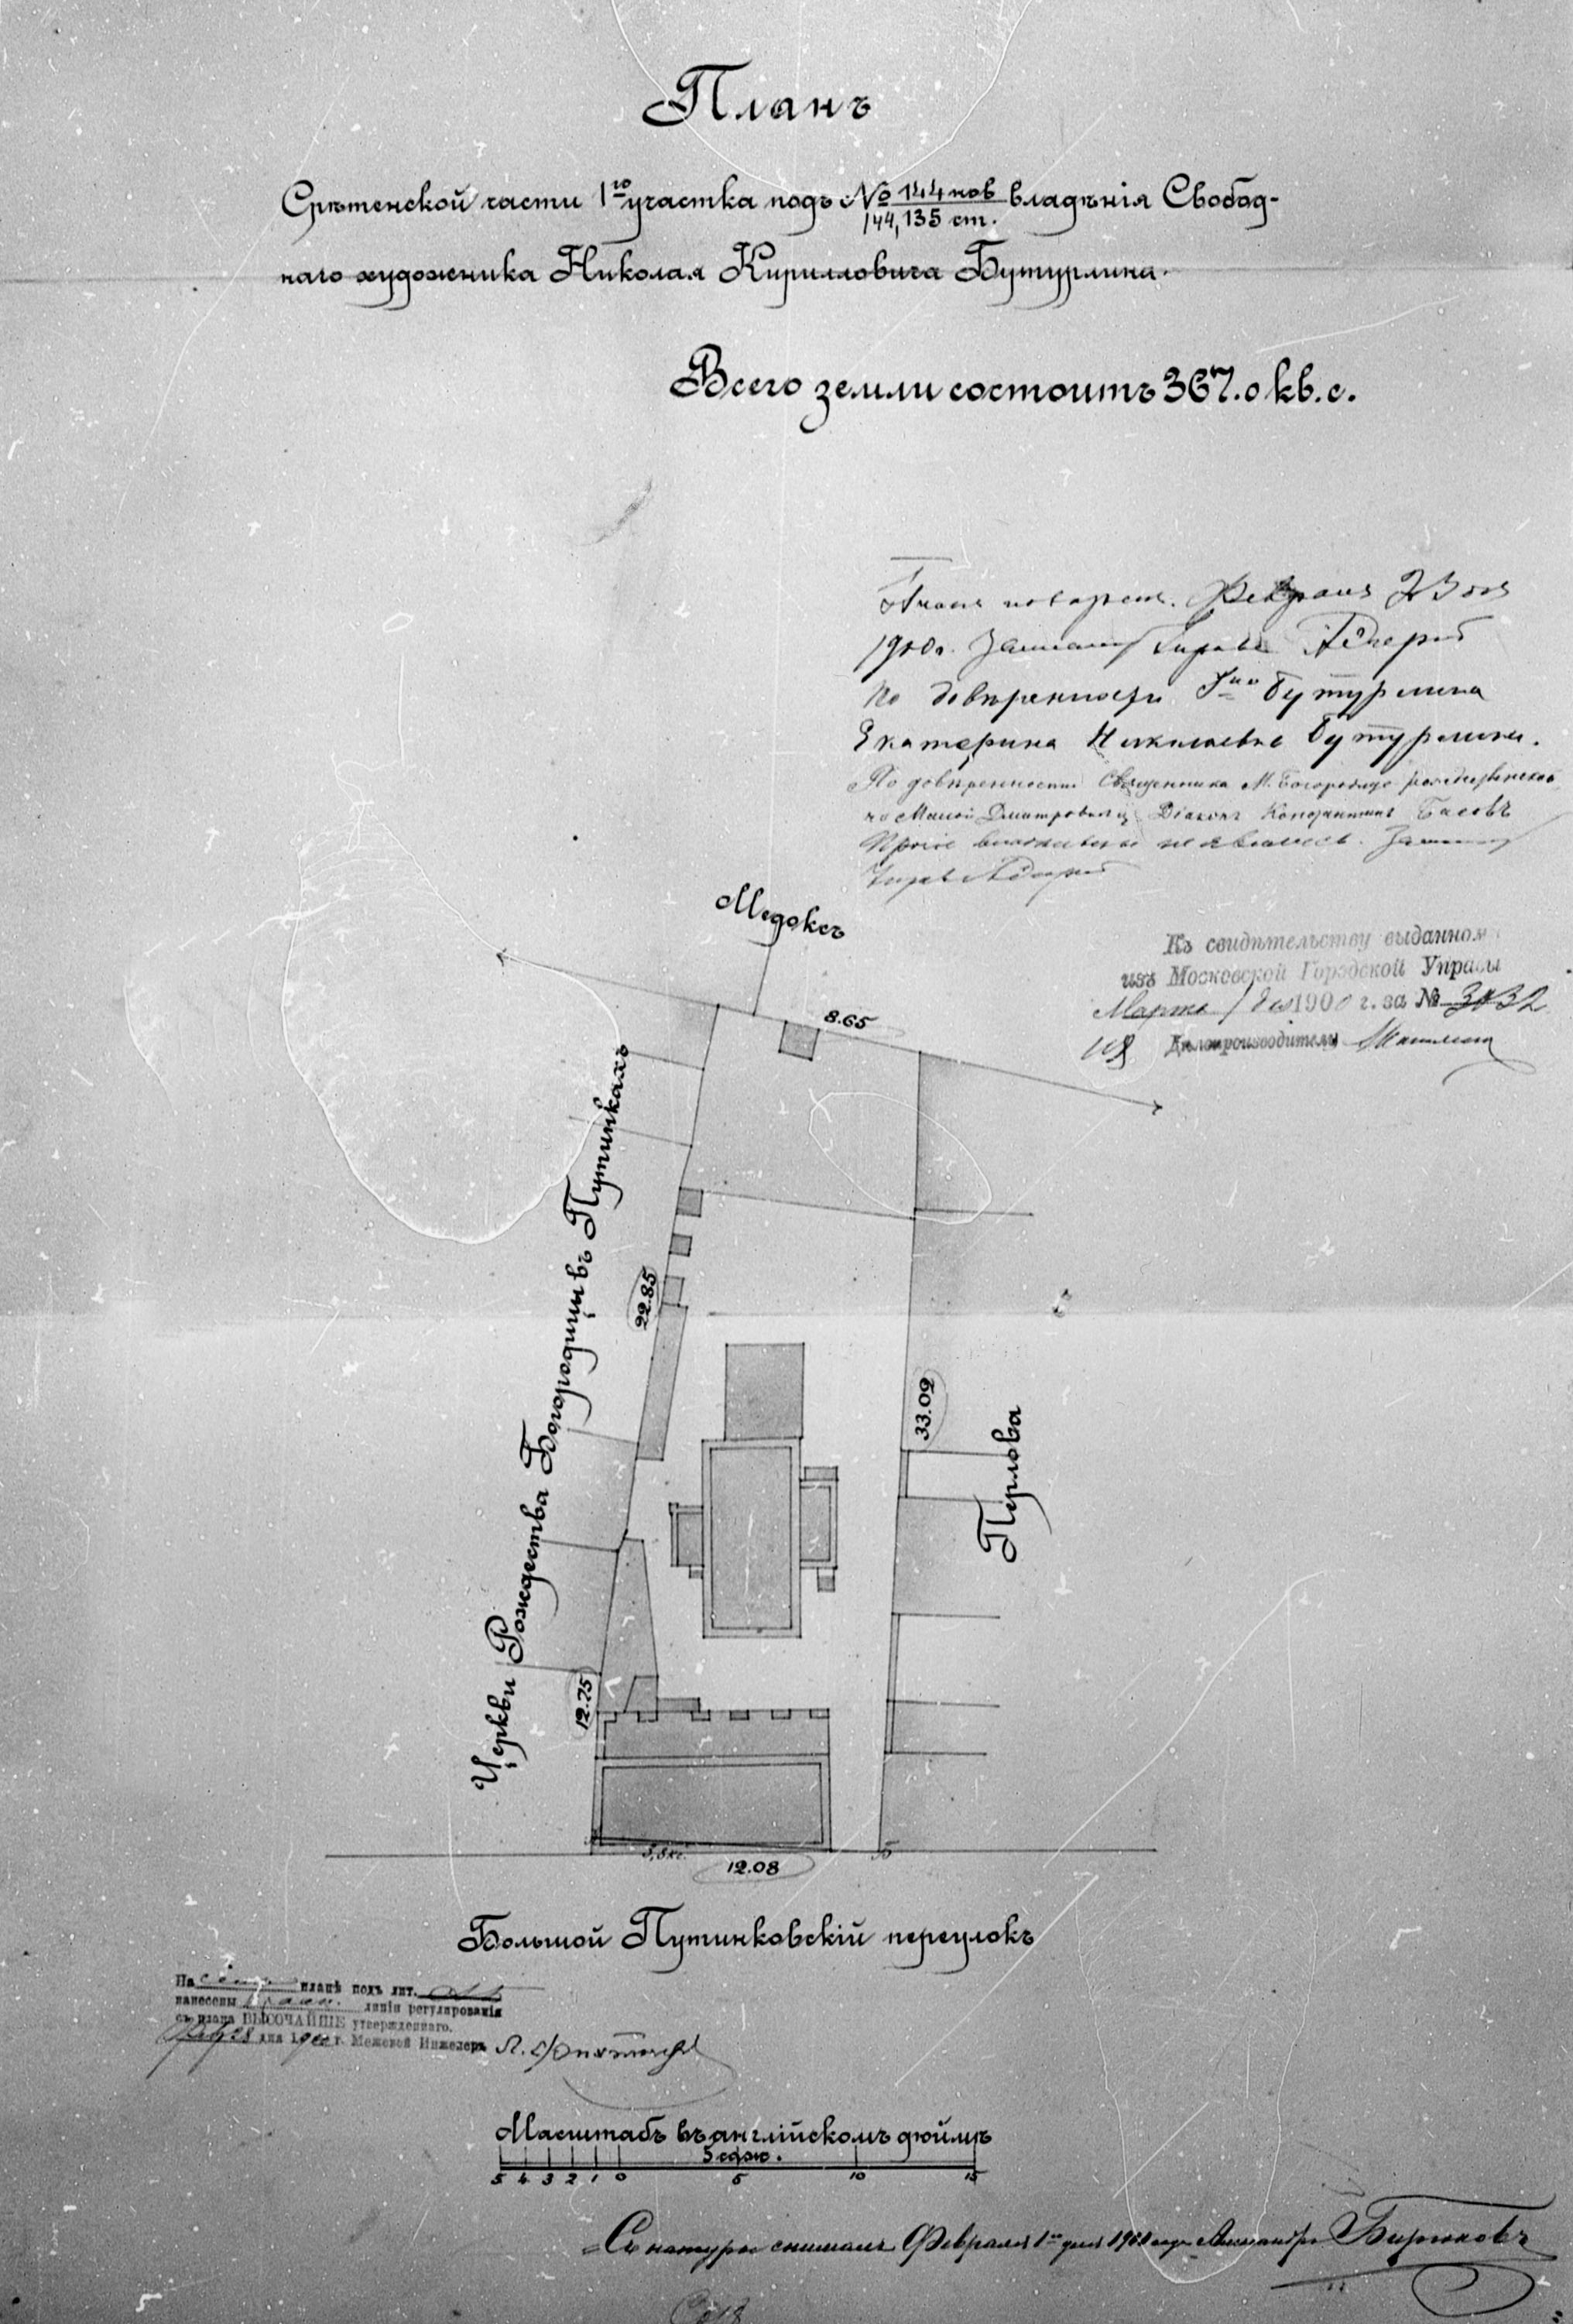 Планъ
Срѣтенской части 1го участка подъ № 144 нов / 144, 135 ст. владѣнія Свобод-
наго художника Николая Кирилловича Бутурлина.
Всего земли состоитъ 367.0 кв. с.
Февраля 23 дня
1900г.
По довѣренности Бутурлина
Екатерина Николаевна Бутурлина.
По довѣренности Священника М. Богородице рождественской
на Малой Дмитровкѣ Діаконъ Константинъ Басовъ
не явились.
Къ свидѣтельству выданном
изъ Московской Городской Управы
Марта 1 дня 1900 г. за №
Дѣлопроизводитель
Медоксъ
8.65
Церкви Рождества Богородицы въ Путинкахъ
22.85
33.09
Перлова
12.75
12.08
Большой Путинковскій переулокъ
На семъ планѣ подъ лит. АБ
нанесены линіи регулированія
съ плана ВЫСОЧАЙШЕ утвержденнаго.
дня 1900 г. Межевой Инженеръ
Масштабъ въ англійскомъ дюймѣ
5 саж.
5 4 3 2 1 0 5 10 15
Съ натуры снималъ Февраля 1го дня 1900 года Александръ Бирюковъ